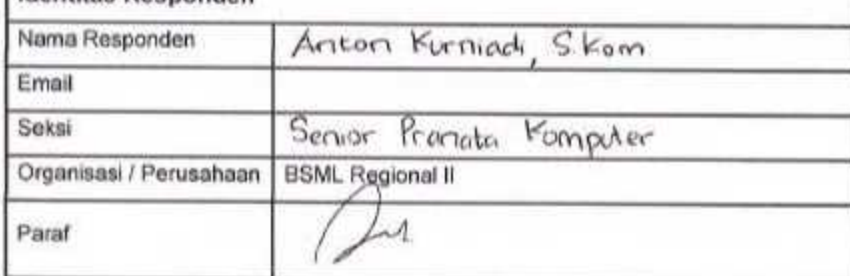 Identitas Responden
Nama Responden Anton Kurniadi, S.Kom
Email
Seksi Senior Pranata Komputer
Organisasi / Perusahaan BSML Regional II
Paraf